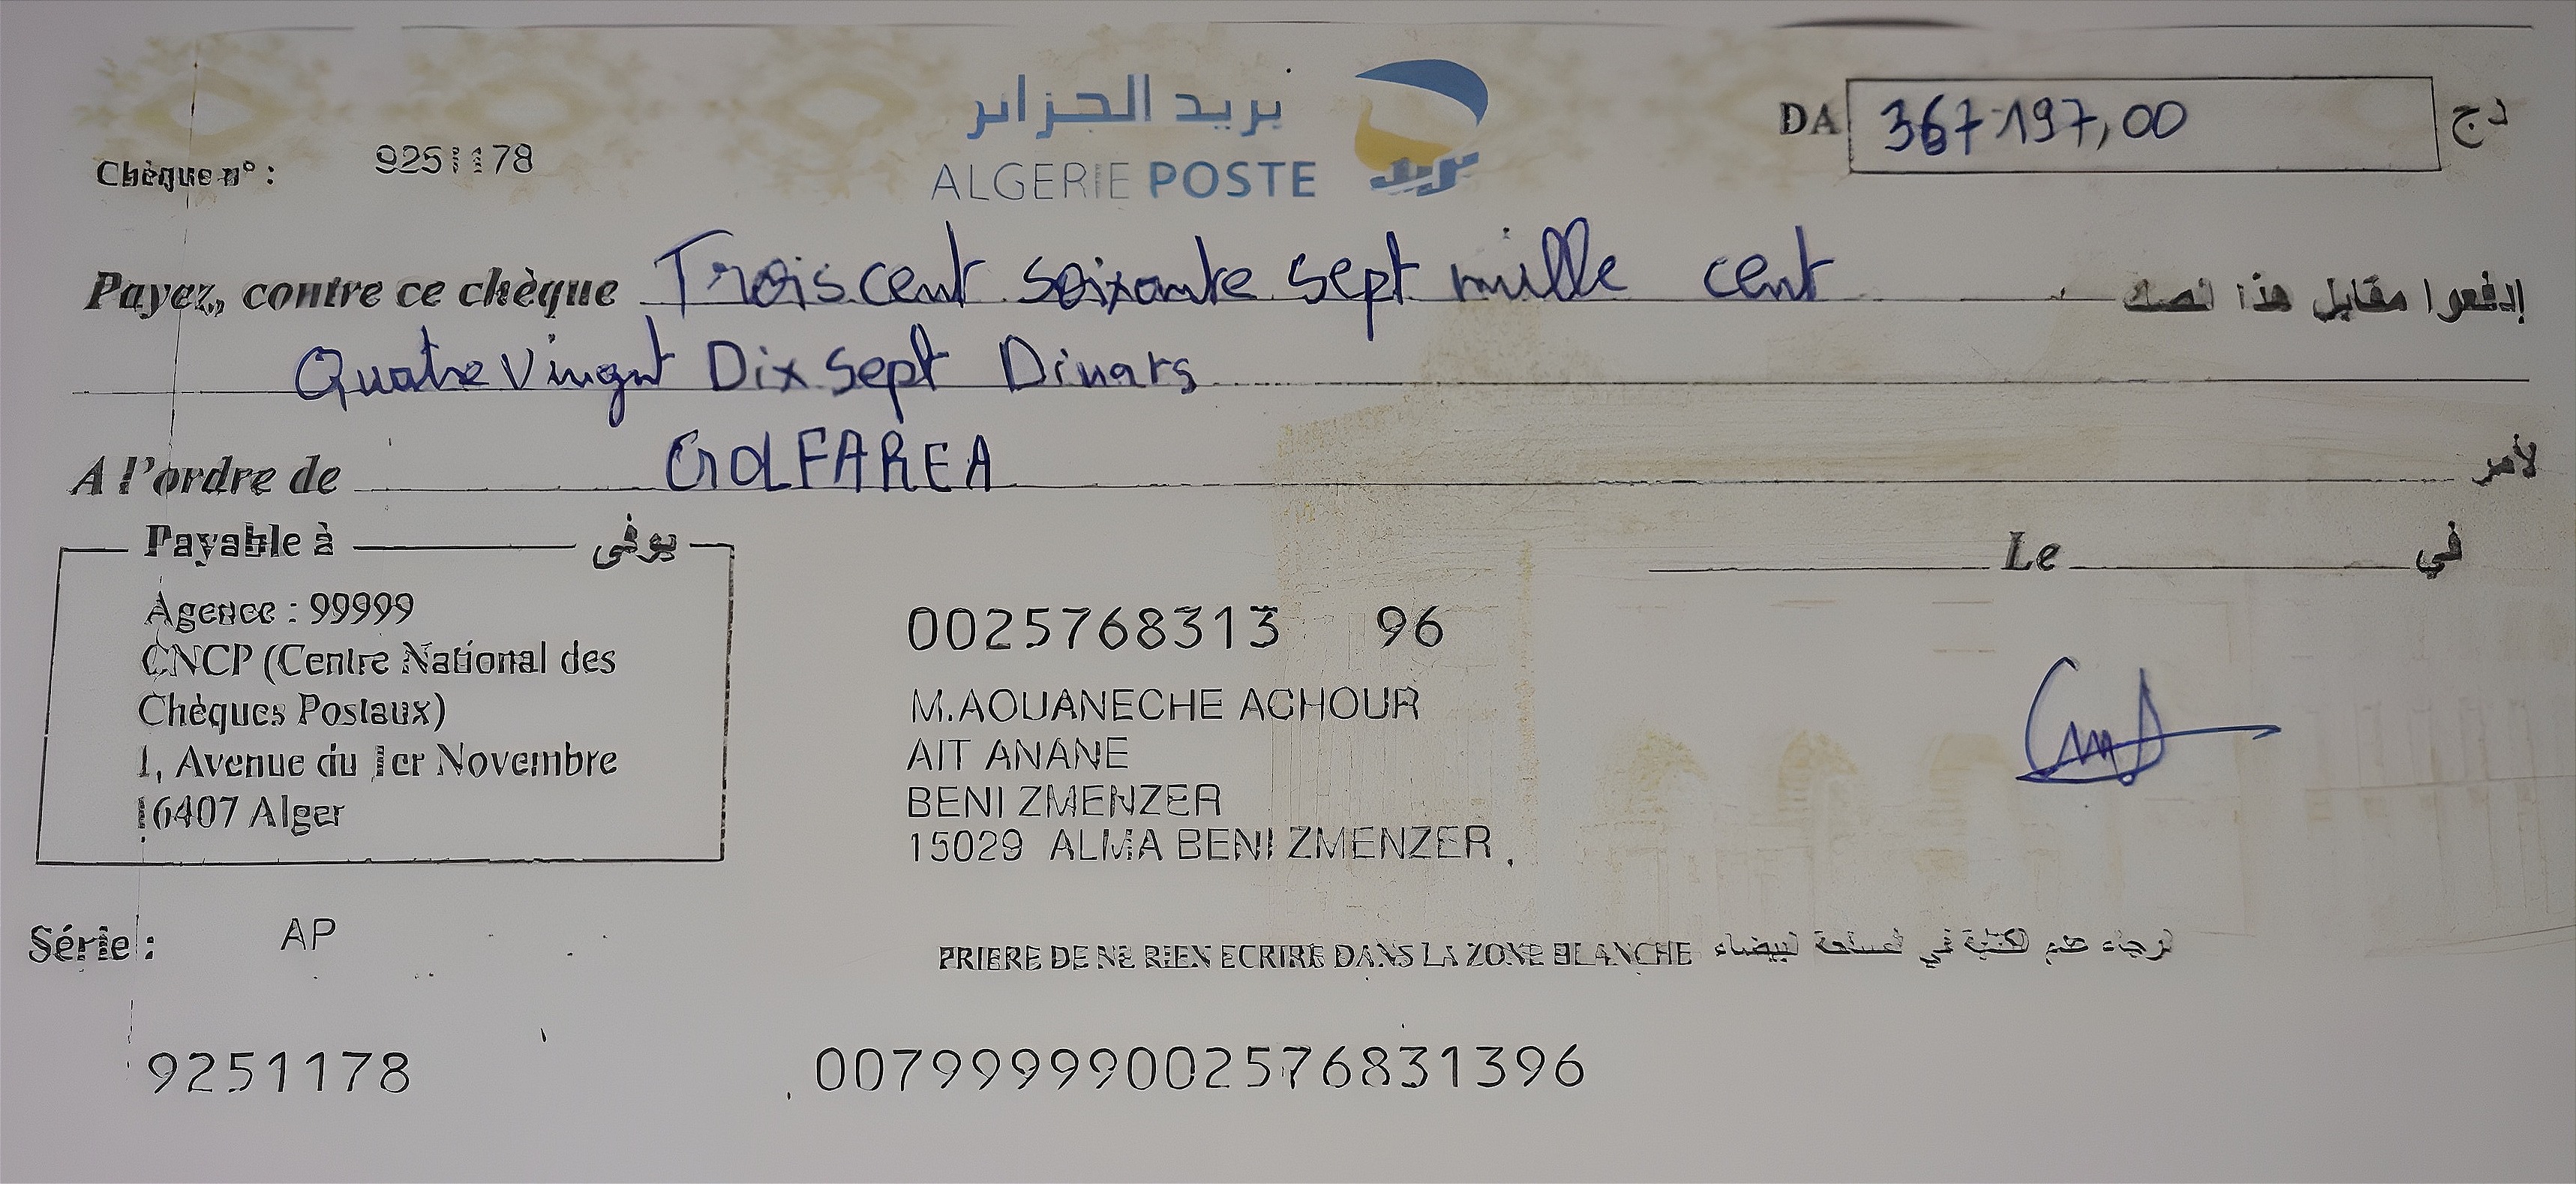 بريد الجزائر
ALGERIE POSTE
بريد
DA 367197,00 دج
Chèque n° : 9251178
Payez, contre ce chèque Trois cent soixante sept mille cent إدفعوا مقابل هذا الصك
Quatre Vingt Dix Sept Dinars
A l'ordre de GOLFAREA لأمر
Payable à يوفى
Le في
Agence : 99999
CNCP (Centre National des
Chèques Postaux)
1, Avenue du 1er Novembre
16407 Alger
0025768313 96
M.AOUANECHE ACHOUR
AIT ANANE
BENI ZMENZER
15029 ALMA BENI ZMENZER
Série : AP
PRIERE DE NE RIEN ECRIRE DANS LA ZONE BLANCHE لرجاء عدم الكتابة في المساحة البيضاء
9251178
00799999002576831396